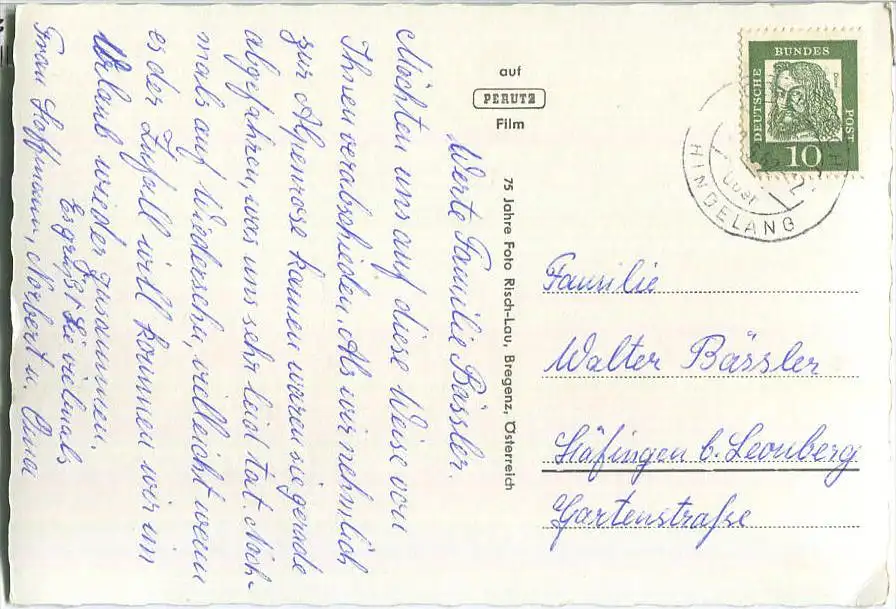 Werte Familie Bässler.
Möchten uns auf diese Weise von
Ihnen verabschieden. Als wir nehmlich
zur Alpenrose kamen waren sie gerade
abgefahren, was uns sehr leid tat. Noch-
mals auf Wiedersehn, vielleicht wenn
es der Zufall will kommen wir im
Urlaub wieder zusammen.
Es grüßt Sie vielmals
Frau Hoffmann, Norbert u. Oma
auf
PERUTZ
Film
75 Jahre Foto Risch-Lau, Bregenz, Österreich
DEUTSCHE
BUNDES
POST
Dürer
10
über
HINDELANG
Familie
Walter Bässler
Häfingen b. Leonberg
Gartenstraße